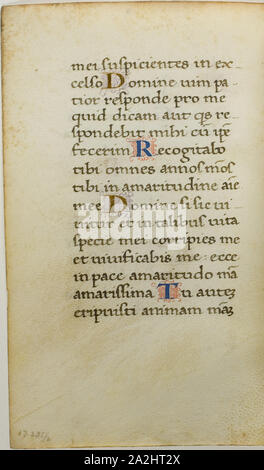 mei suspicientes in ex-
celso Domine uim pa-
tior responde pro me
quid dicam aut qs re-
spondebit mihi cũ ipẽ
fecerim Recogitabo
tibi omnes annos mõs
tibi in amaritudine aĩe
mee Domine si sic ui-
uitur et in talibus uita
specie mei corripies me
et uiuificabis me : ecce
in pace amaritudo mã
amarissima Tu autez
eripuisti animam maz
alamy
Image ID: 2A2HT2X
www.alamy.com